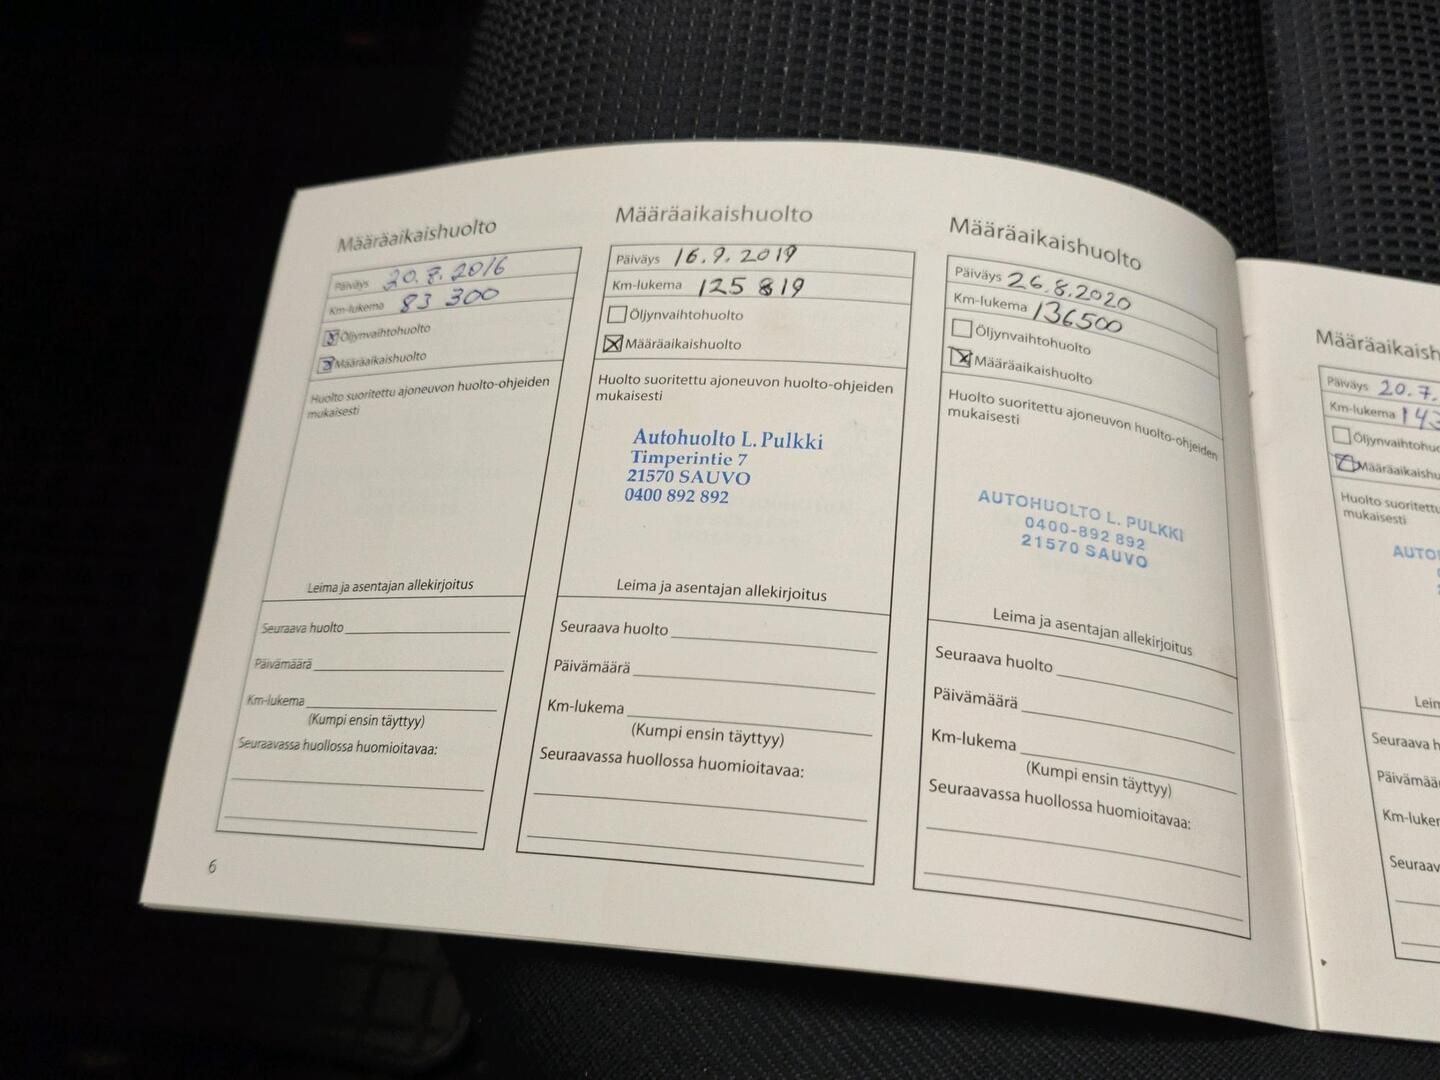 Määräaikaishuolto
Päiväys 20.7.2016
Km-lukema 83 300
Öljynvaihtohuolto
Määräaikaishuolto
Huolto suoritettu ajoneuvon huolto-ohjeiden
mukaisesti
Leima ja asentajan allekirjoitus
Seuraava huolto
Päivämäärä
Km-lukema
(Kumpi ensin täyttyy)
Seuraavassa huollossa huomioitavaa:
6
Määräaikaishuolto
Päiväys 16.9.2019
Km-lukema 125 819
Öljynvaihtohuolto
Määräaikaishuolto
Huolto suoritettu ajoneuvon huolto-ohjeiden
mukaisesti
Autohuolto L. Pulkki
Timperintie 7
21570 SAUVO
0400 892 892
Leima ja asentajan allekirjoitus
Seuraava huolto
Päivämäärä
Km-lukema
(Kumpi ensin täyttyy)
Seuraavassa huollossa huomioitavaa:
Määräaikaishuolto
Päiväys 26.8.2020
Km-lukema 136500
Öljynvaihtohuolto
Määräaikaishuolto
Huolto suoritettu ajoneuvon huolto-ohjeiden
mukaisesti
AUTOHUOLTO L. PULKKI
0400-892 892
21570 SAUVO
Leima ja asentajan allekirjoitus
Seuraava huolto
Päivämäärä
Km-lukema
(Kumpi ensin täyttyy)
Seuraavassa huollossa huomioitavaa:
Määräaikaish
Päiväys 20.7.
Km-lukema 143
Öljynvaihtohuo
Määräaikaishu
Huolto suoritettu
mukaisesti
AUTO
Leim
Seuraava h
Päivämää
Km-luker
Seuraav